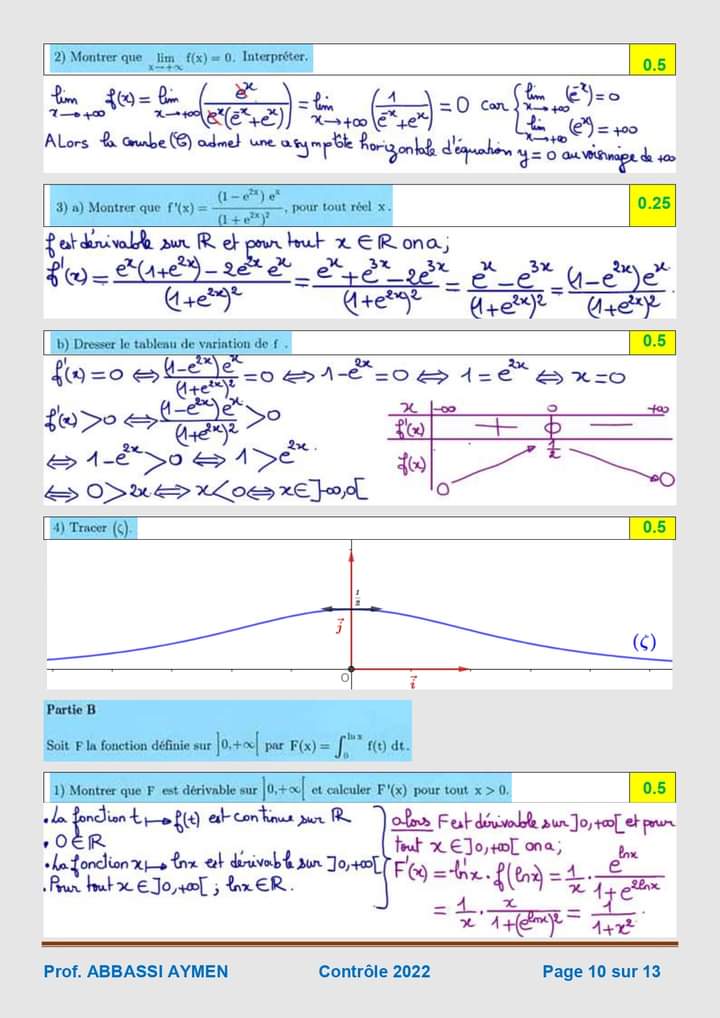 2) Montrer que lim x→+∞ f(x) = 0. Interpréter.
0.5
lim x→+∞ f(x) = lim x→+∞ (e^x / (e^x(e^-x + e^x))) = lim x→+∞ (1 / (e^-x + e^x)) = 0 car { lim x→+∞ (e^-x) = 0
lim x→+∞ (e^x) = +∞
Alors la courbe (ζ) admet une asymptôte horizontale d'équation y = 0 au voisinage de +∞
3) a) Montrer que f'(x) = (1 − e^2x) e^x / (1 + e^2x)^2, pour tout réel x.
0.25
f est dérivable sur ℝ et pour tout x ∈ ℝ on a;
f'(x) = (e^x(1+e^2x) − 2e^2x e^x) / (1+e^2x)^2 = (e^x + e^3x − 2e^3x) / (1+e^2x)^2 = (e^x − e^3x) / (1+e^2x)^2 = (1−e^2x)e^x / (1+e^2x)^2.
b) Dresser le tableau de variation de f .
0.5
f'(x) = 0 ⇔ (1−e^2x)e^x / (1+e^2x)^2 = 0 ⇔ 1−e^2x = 0 ⇔ 1 = e^2x ⇔ x = 0
f'(x) > 0 ⇔ (1−e^2x)e^x / (1+e^2x)^2 > 0
⇔ 1−e^2x > 0 ⇔ 1 > e^2x.
⇔ 0 > 2x ⇔ x < 0 ⇔ x ∈ ]-∞,0[
x -∞ 0 +∞
f'(x) + 0 −
f(x) 0 1/2 0
4) Tracer (ζ).
0.5
1/2
j
(ζ)
O
i
Partie B
Soit F la fonction définie sur ]0,+∞[ par F(x) = ∫_0^ln x f(t) dt.
1) Montrer que F est dérivable sur ]0,+∞[ et calculer F'(x) pour tout x > 0.
0.5
. La fonction t ↦ f(t) est continue sur ℝ
. 0 ∈ ℝ
. La fonction x ↦ lnx est dérivable sur ]0,+∞[
. Pour tout x ∈ ]0,+∞[ ; lnx ∈ ℝ.
alors F est dérivable sur ]0,+∞[ et pour
tout x ∈ ]0,+∞[ on a;
F'(x) = ln'x . f(lnx) = 1/x . e^lnx / (1+e^2lnx)
= 1/x . x / (1+(e^lnx)^2) = 1 / (1+x^2).
Prof. ABBASSI AYMEN Contrôle 2022 Page 10 sur 13